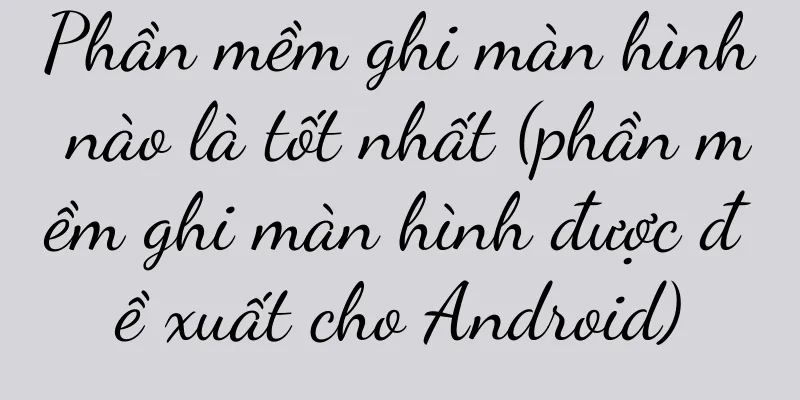 Phần mềm ghi màn hình
nào là tốt nhất (phần m
ềm ghi màn hình được đ
ề xuất cho Android)